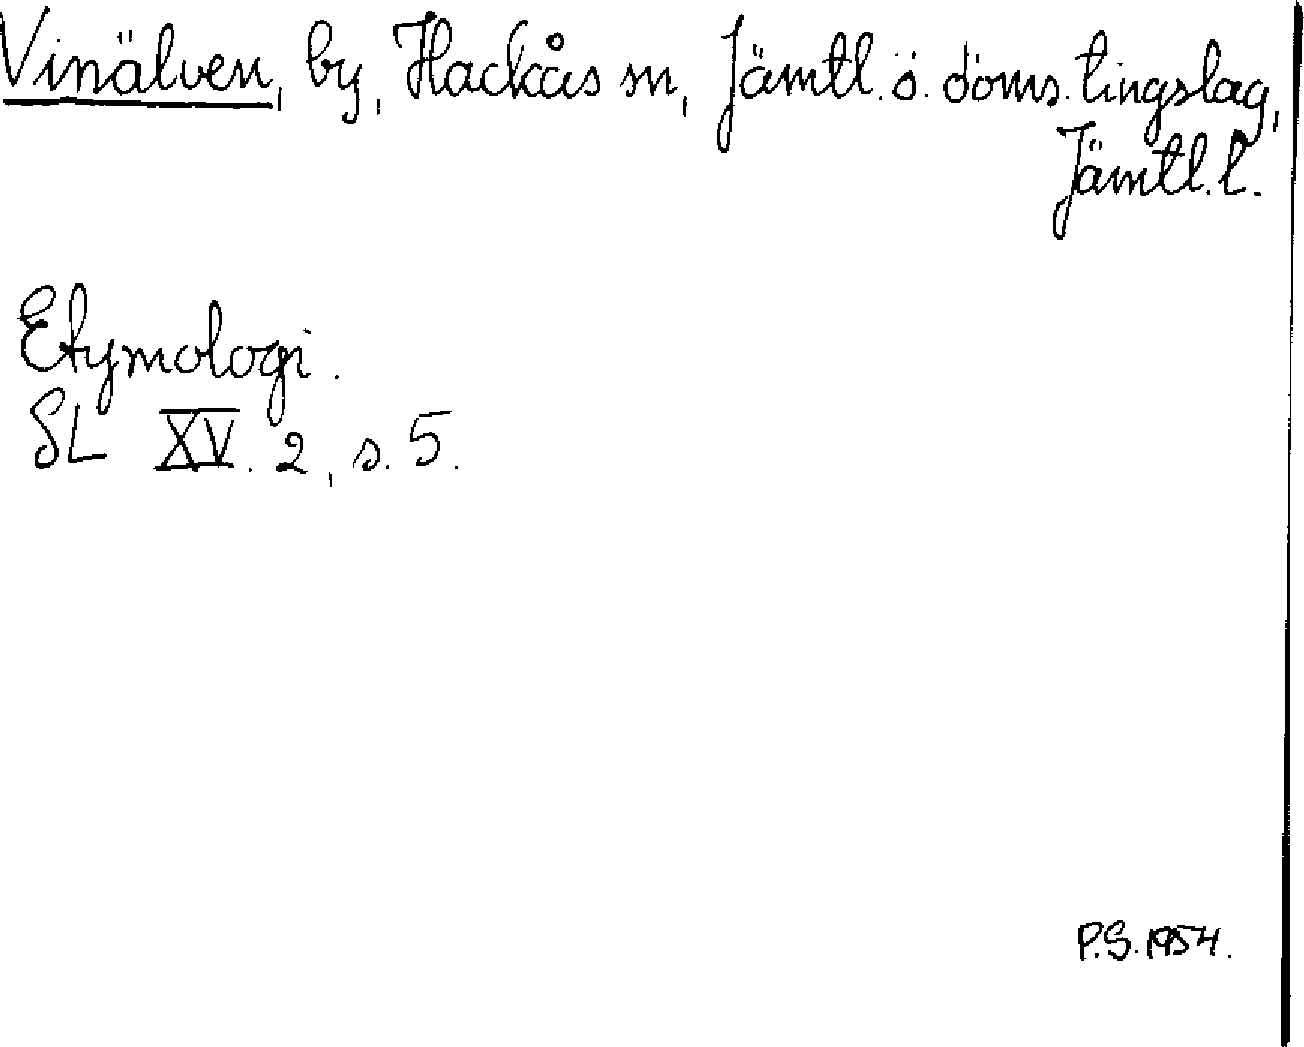 Vinälven, by, Hackås sn, Jämtl. ö. doms. tingslag,
Jämtl. l.
Etymologi.
SL XV. 2, s. 5.
P.S. 1954.